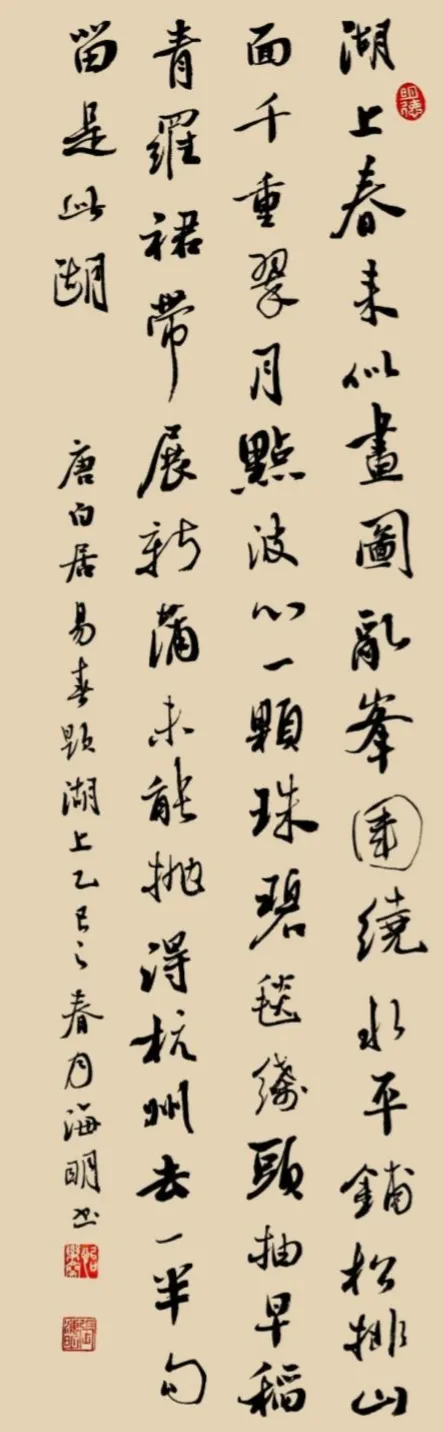 湖上春来似畫圖亂峯圍繞水平鋪松排山
面千重翠月點波心一顆珠碧毯綫頭抽早稻
青羅裙帶展新蒲未能抛得杭州去一半勾
留是此湖
唐白居易春題湖上乙巳之春月海明书